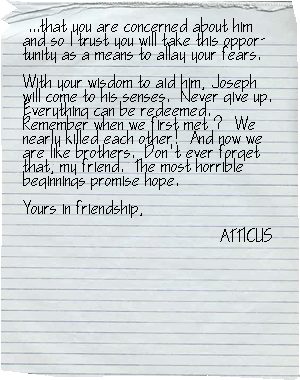 ...that you are concerned about him
and so I trust you will take this oppor-
tunity as a means to allay your fears.
With your wisdom to aid him, Joseph
will come to his senses. Never give up.
Everything can be redeemed.
Remember when we first met ? We
nearly killed each other! And now we
are like brothers. Don't ever forget
that, my friend. The most horrible
beginnings promise hope.
Yours in friendship,
ATTICUS